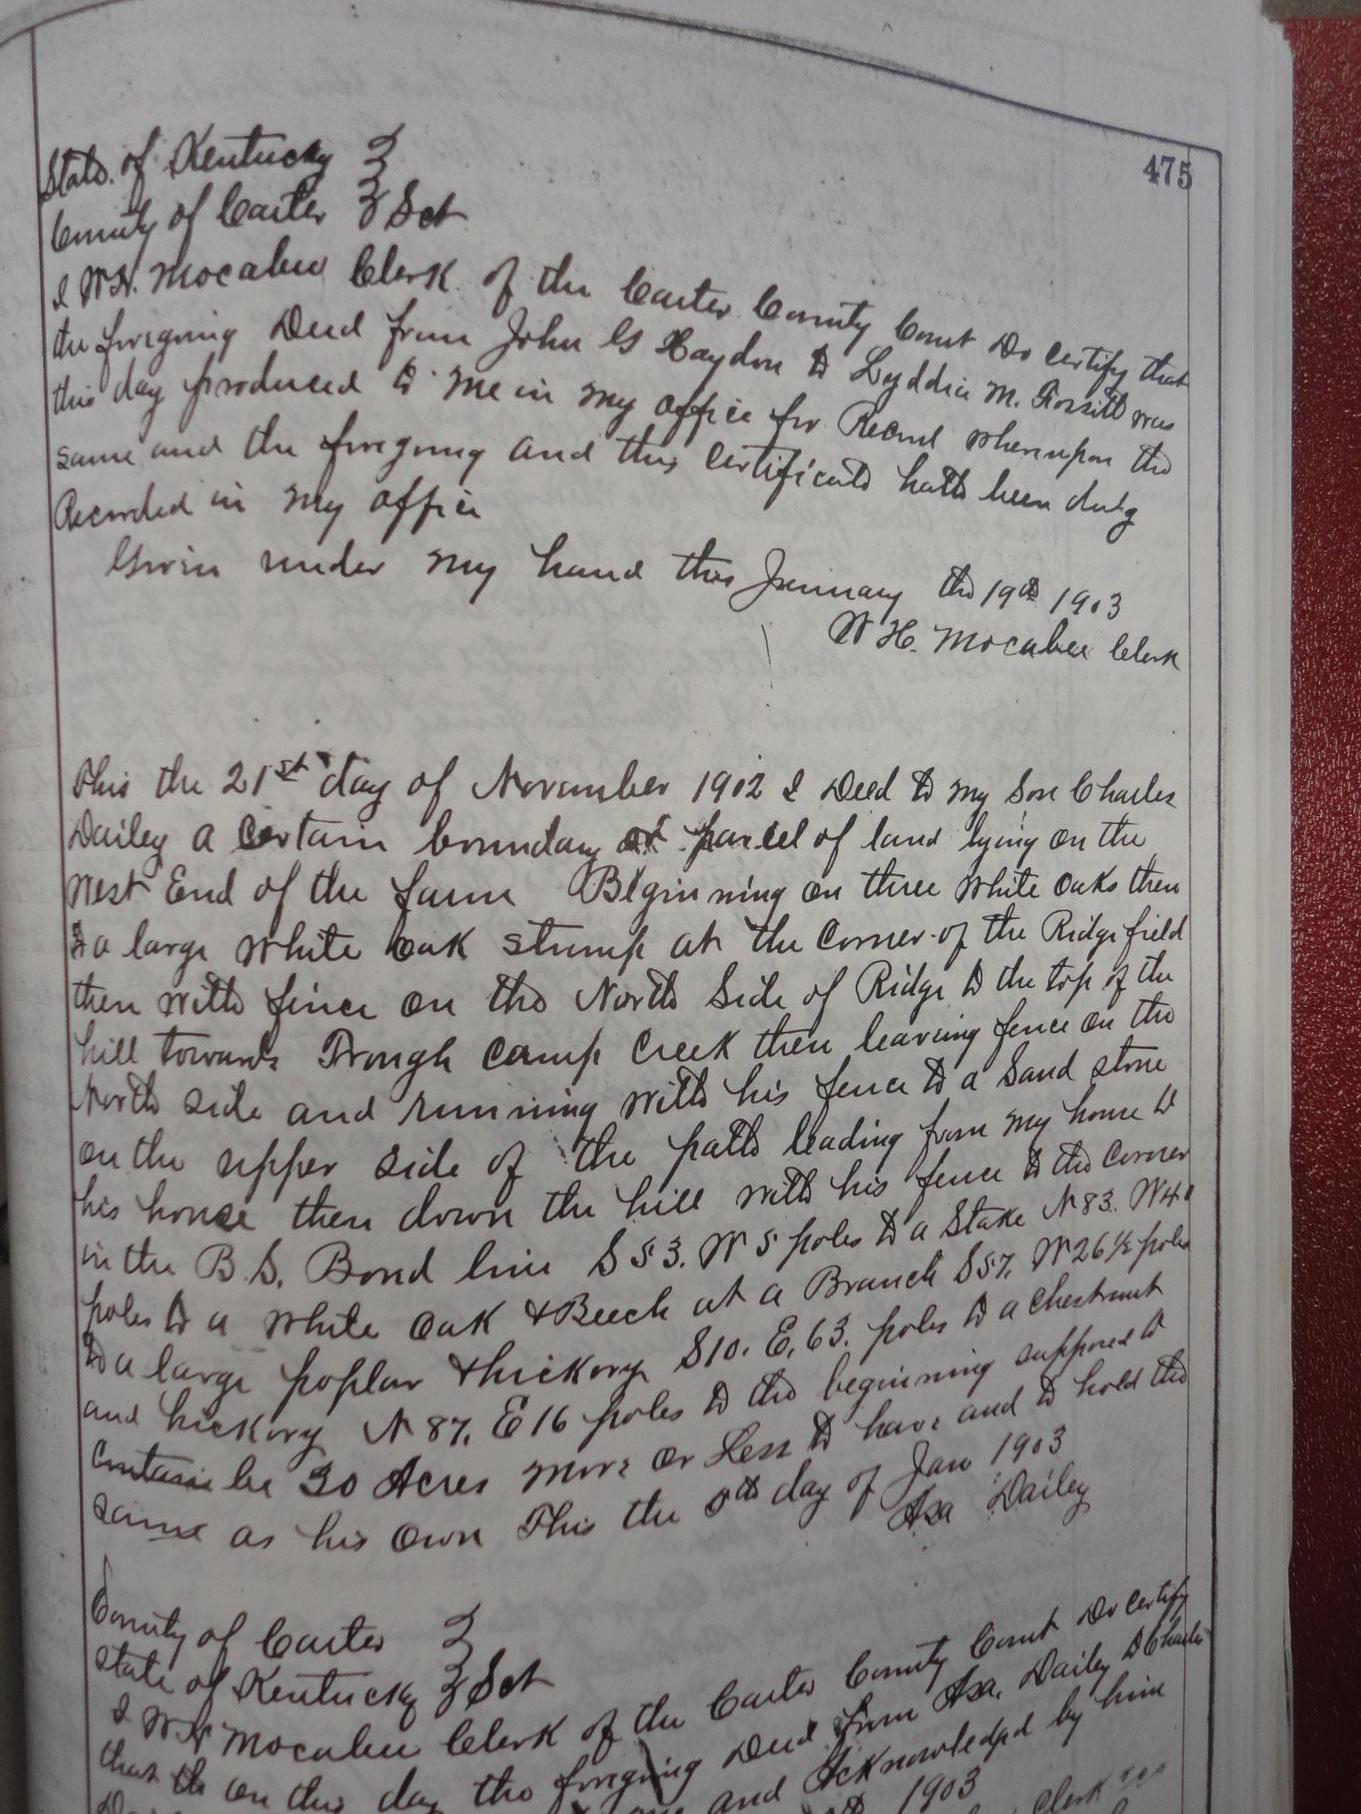 475
State of Kentucky
County of Carter Sct
I W.H. Mocabee Clerk of the Carter County Court Do certify that
the foregoing Deed from John G Haydon to Lyddia M. was
this day produced to me in my office for Record whereupon the
same and the foregoing and this certificate hath been duly
Recorded in my office
Given under my hand this January the 19th 1903
W H. Mocabee Clerk
This the 21st day of November 1902 I Deed to my Son Charles
Dailey a Certain boundary or parcel of land lying on the
West End of the farm Beginning on three white oaks then
to a large white oak stump at the corner of the Ridge field
then with fence on the North Side of Ridge to the top of the
hill towards Trough Camp Creek then leaving fence on the
North side and running with his fence to a Sand stone
on the upper side of the path leading from my house to
his house then down the hill with his fence to the corner
in the B.S. Bond line S 53. W 5 poles to a Stake N 83. W 40
poles to a white oak & Beech at a Branch S 57. W 26 1/2 poles
to a large poplar & hickory S 10. E. 63. poles to a chestnut
and hickory N 87. E 16 poles to the beginning supposed to
Contain be 30 Acres more or Less to have and to hold the
same as his own This the day of Jan 1903
Asa Dailey
County of Carter
State of Kentucky Sct
I W H Mocabee Clerk of the Carter County Court Do certify
that on this day the foregoing Deed from Asa. Dailey to Charles
and Acknowledged by him
1903
Clerk